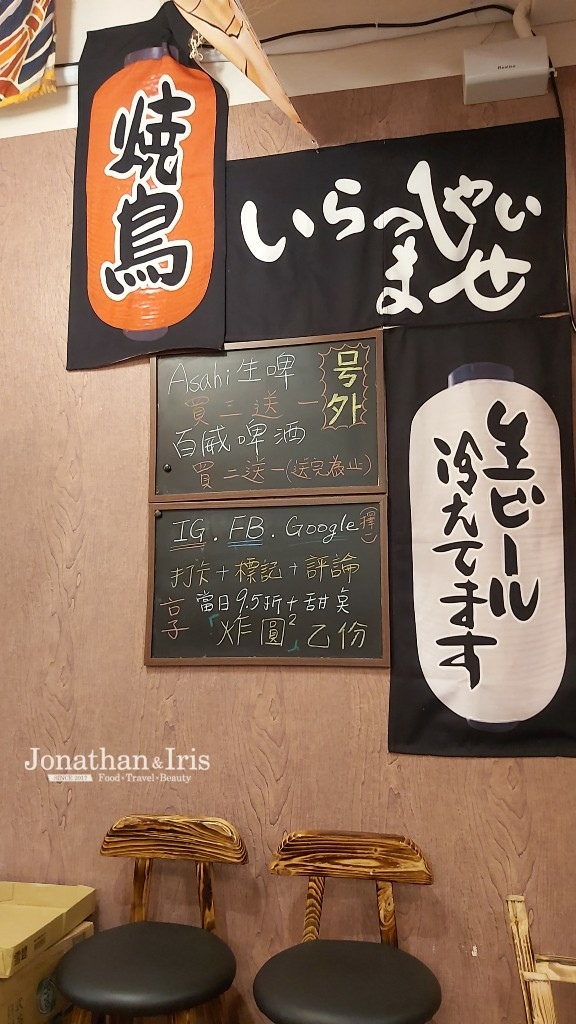 焼鳥
いらっしゃいませ
号外
Asahi 生啤
買二送一
百威啤酒
買二送一(送完為止)
IG.FB.Google(擇一)
打卡+標記+評論
享當日9.5折+甜點
「炸圓²」乙份
生ビール
冷えてます
Jonathan & Iris
SINCE 2017
Food•Travel•Beauty